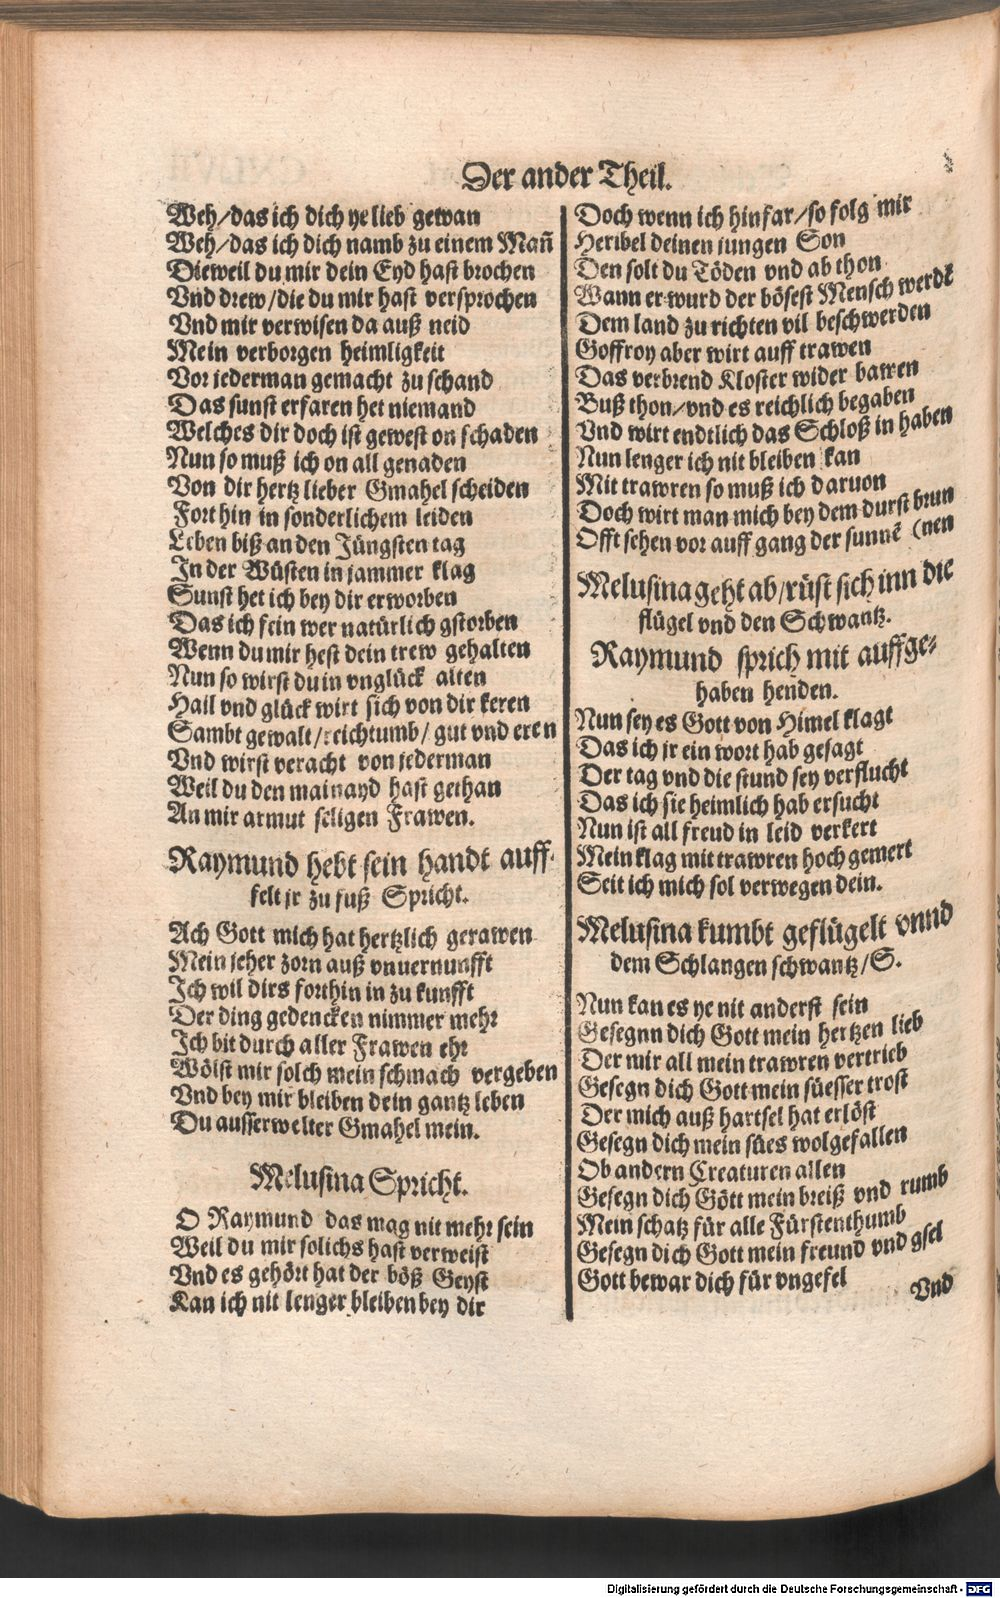 Der ander Theil.
Weh/das ich dich ye lieb gewan
Weh/das ich dich namb zu einem Mañ
Dieweil du mir dein Eyd hast brochen
Vnd drew/die du mir hast versprochen
Vnd mir verwisen da auß neid
Mein verborgen heimligkeit
Vor jederman gemacht zu schand
Das sunst erfaren het niemand
Welches dir doch ist gewest on schaden
Nun so muß ich on all genaden
Von dir hertz lieber Gmahel scheiden
Fort hin in sonderlichem leiden
Leben biß an den Jüngsten tag
In der Wüsten in jammer klag
Sunst het ich bey dir erworben
Das ich fein wer natürlich gstorben
Wenn du mir hest dein trew gehalten
Nun so wirst du in vnglück alten
Hail vnd glück wirt sich von dir keren
Sambt gewalt/reichtumb/ gut vnd eren
Vnd wirst veracht von jederman
Weil du den mainayd hast gethan
An mir armut seligen Frawen.
Raymund hebt sein handt auff-
felt jr zu fuß Spricht.
Ach Gott mich hat hertzlich gerawen
Mein jeher zorn auß vnuernunfft
Ich wil dirs forthin in zu kunfft
Der ding gedencken nimmer mehr
Ich bit durch aller Frawen ehr
Wölst mir solch mein schmach vergeben
Vnd bey mir bleiben dein gantz leben
Du ausserwelter Gmahel mein.
Melusina Spricht.
O Raymund das mag nit mehr sein
Weil du mir solichs hast verweist
Vnd es gehört hat der böß Geyst
Kan ich nit lenger bleiben bey dir
Doch wenn ich hinfar/so folg mir
Heribel deinen jungen Son
Den solt du Töden vnd ab thon
Wann er wurd der bösest Mensch werdē
Dem land zu richten vil beschwerden
Goffroy aber wirt auff trawen
Das verbrend Kloster wider bawen
Buß thon/vnd es reichlich begaben
Vnd wirt endtlich das Schloß in haben
Nun lenger ich nit bleiben kan
Mit trawren so muß ich daruon
Doch wirt man mich bey dem durst brun
Offt sehen vor auff gang der sunnē (nen
Melusina geht ab/rüst sich inn die
flügel vnd den Schwantz.
Raymund sprich mit auffge-
haben henden.
Nun sey es Gott von Himel klagt
Das ich jr ein wort hab gesagt
Der tag vnd die stund sey verflucht
Das ich sie heimlich hab ersucht
Nun ist all freud in leid verkert
Mein klag mit trawren hoch gemert
Seit ich mich sol verwegen dein.
Melusina kumbt geflügelt vnnd
dem Schlangen schwantz/S.
Nun kan es ye nit anderst sein
Gesegnn dich Gott mein hertzen lieb
Der mir all mein trawren vertrieb
Gesegn dich Gott mein süesser trost
Der mich auß hartsel hat erlöst
Gesegn dich mein sües wolgefallen
Ob andern Creaturen allen
Gesegn dich Gött mein breiß vnd rumb
Mein schatz für alle Fürstenthumb
Gesegn dich Gott mein freund vnd gsel
Gott bewar dich für vngefel
Vnd
Digitalisierung gefördert durch die Deutsche Forschungsgemeinschaft - DFG